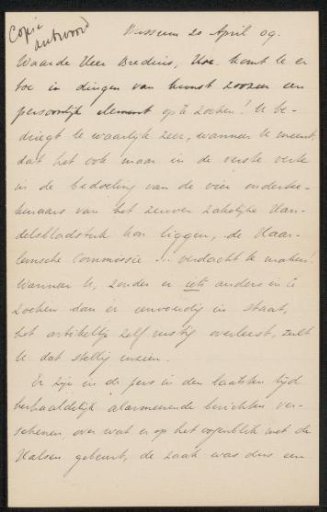 Copie
antwoord
Bussum 20 April 09.
Waarde Heer Bredius, Hoe komt U er
toe in dingen van kunst zoozeer een
persoonlijk element op te zoeken! U be-
driegt U waarlijk zeer, wanneer U meent
dat het ook maar in de verste verte
in de bedoeling van de vier ondertee-
kenaars van het zuiver zakelijke Han-
delsbladstuk kon liggen, de Haar-
lemsche Commissie verdacht te maken!
Wanneer U, zonder er iets anders in te
zoeken dan er eenvoudig in staat,
het artikeltje zelf rustig overleest, zult
U dat stellig inzien.
Er zijn in de pers in den laatsten tijd
herhaaldelijk alarmeerende berichten ver-
schenen, over wat er op het oogenblik met de
Halsen gebeurt, de zaak was dus een